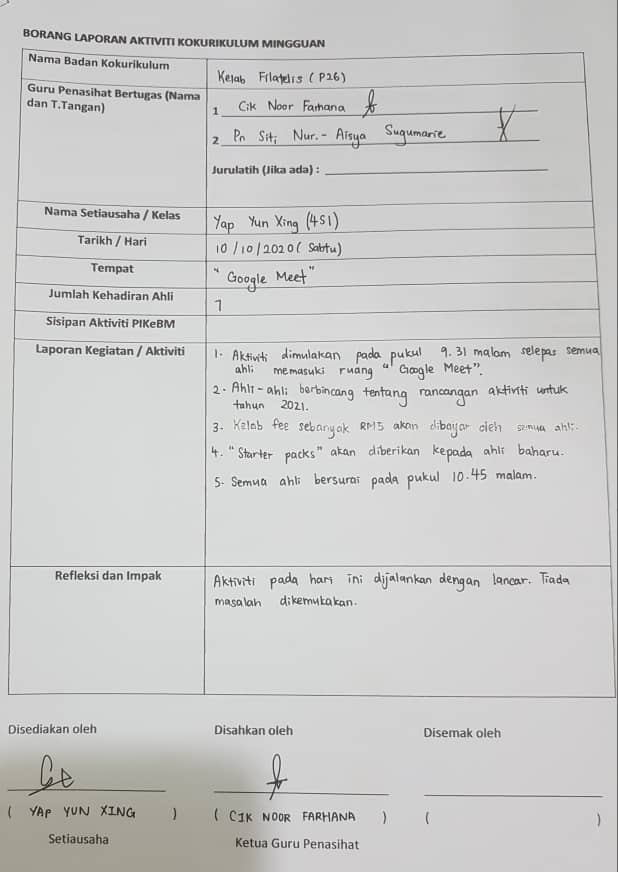 BORANG LAPORAN AKTIVITI KOKURIKULUM MINGGUAN
Nama Badan Kokurikulum
Kelab Filatelis (P26)
Guru Penasihat Bertugas (Nama
dan T.Tangan)
1 Cik Noor Farhana
2 Pn Siti Nur.- Aisya Sugumarie
Jurulatih (Jika ada) :
Nama Setiausaha / Kelas
Yap Yun Xing (4S1)
Tarikh / Hari
10/10/2020 (Sabtu)
Tempat
"Google Meet"
Jumlah Kehadiran Ahli
7
Sisipan Aktiviti PIKeBM
Laporan Kegiatan / Aktiviti
1. Aktiviti dimulakan pada pukul 9.31 malam selepas semua
ahli memasuki ruang "Google Meet".
2. Ahli-ahli berbincang tentang rancangan aktiviti untuk
tahun 2021.
3. Kelab fee sebanyak RM5 akan dibayar oleh semua ahli.
4. "Starter packs" akan diberikan kepada ahli baharu.
5. Semua ahli bersurai pada pukul 10.45 malam.
Refleksi dan Impak
Aktiviti pada hari ini dijalankan dengan lancar. Tiada
masalah dikemukakan.
Disediakan oleh
Disahkan oleh
Disemak oleh
( YAP YUN XING )
( CIK NOOR FARHANA )
( )
Setiausaha
Ketua Guru Penasihat